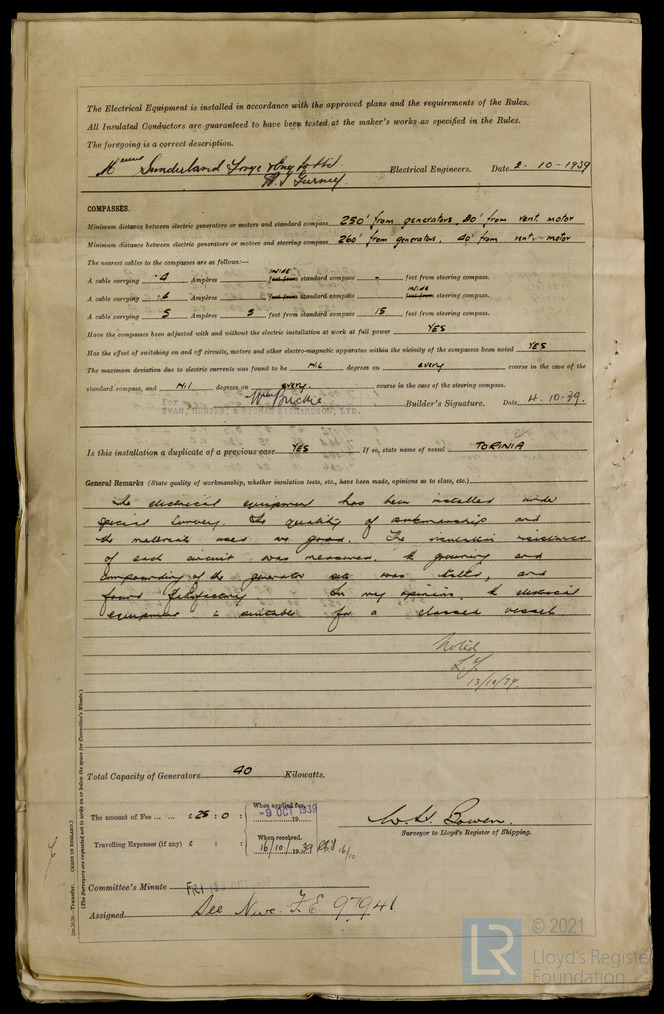 The Electrical Equipment is installed in accordance with the approved plans and the requirements of the Rules.
All Insulated Conductors are guaranteed to have been tested at the maker's works as specified in the Rules.
The foregoing is a correct description.
Messrs Sunderland Forge & Eng Co Ltd. Electrical Engineers. Date 2-10-1939
COMPASSES.
Minimum distance between electric generators or motors and standard compass 250' from generators, 20' from vent. motor
Minimum distance between electric generators or motors and steering compass 260' from generators, 40' from vent. motor
The nearest cables to the compasses are as follows:—
A cable carrying .4 Ampères inside feet from standard compass - feet from steering compass.
A cable carrying Ampères feet from standard compass inside feet from steering compass.
A cable carrying 5 Ampères 5 feet from standard compass 15 feet from steering compass.
Have the compasses been adjusted with and without the electric installation at work at full power YES
Has the effect of switching on and off circuits, motors and other electro-magnetic apparatus within the vicinity of the compasses been noted YES
The maximum deviation due to electric currents was found to be Nil degrees on every course in the case of the
standard compass, and Nil degrees on every. course in the case of the steering compass.
For
SWAN, HUNTER, & WIGHAM RICHARDSON, LTD. Builder's Signature. Date 4.10.39.
Is this installation a duplicate of a previous case YES If so, state name of vessel TORINIA
General Remarks (State quality of workmanship, whether insulation tests, etc., have been made, opinions as to class, etc.)
The electrical equipment has been installed under
Special Survey. The quality of workmanship and
the materials used are good. The insulation resistance
of each circuit was measured, the governing and
compounding of the generator sets was tested, and
found satisfactory. In my opinion, the electrical
equipment is suitable for a classed vessel.
Noted
L.Y.
13/10/39.
Total Capacity of Generators 90 Kilowatts.
The amount of Fee ... ... £ 25 : 0 : When applied for, -9 OCT 1939
W. H. Bowen.
Surveyor to Lloyd's Register of Shipping.
Travelling Expenses (if any) £ : : When received, 16/10/1939
16/10
Committee's Minute FRI OCT
Assigned See Nwc. F.E. 97941
2m.10.38.—Transfer. (MADE IN ENGLAND.)
(The Surveyors are requested not to write on or below the space for Committee's Minute.)
LR © 2021
Lloyd's Register
Foundation